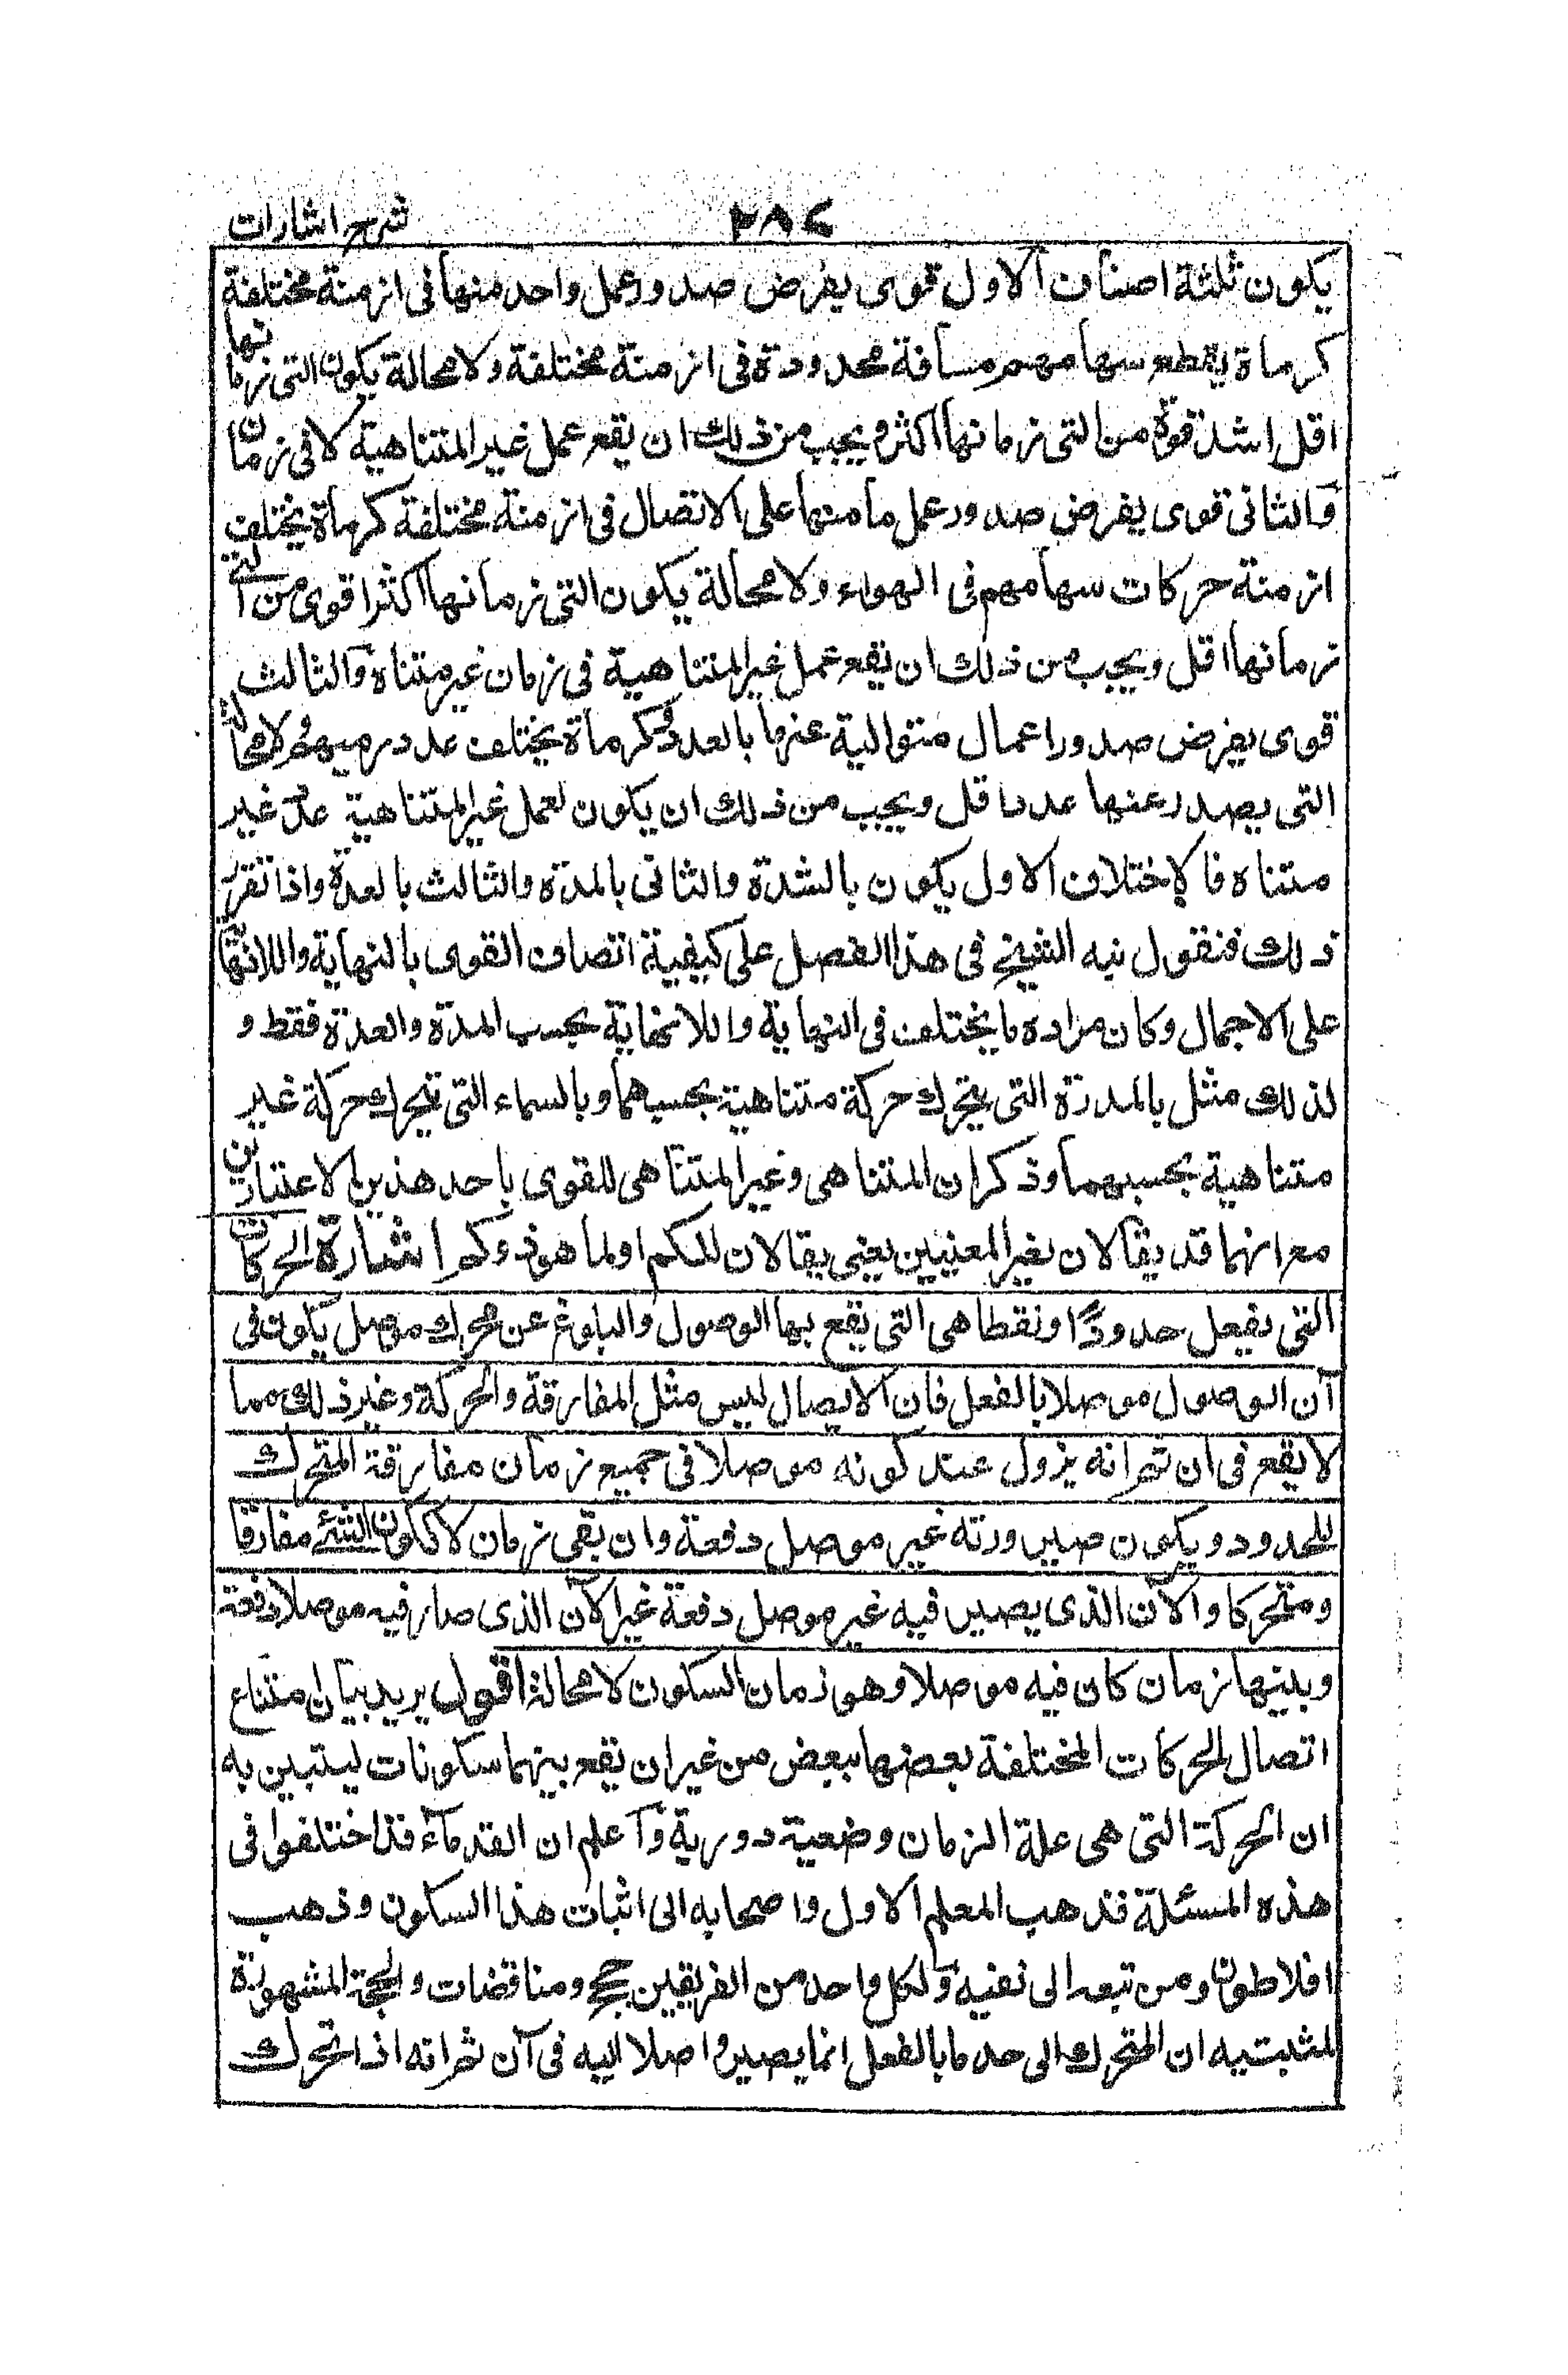 شرح اشارات
٢٨٤
يكون ثلثة اصناف الاول قوى يفرض صدور عمل واحد منها فى ازمنة مختلفة
كرماة يقطع سهامهم مسافة محدودة فى ازمنة مختلفة ولا محالة يكون التى زمانها
اقل اشد قوة من التى زمانها اكثر ويجب من ذلك ان يقع عمل غير المتناهية لا فى زمان
والثانى قوى يفرض صدور عمل ما منها على الاتصال فى ازمنة مختلفة كرماة يختلف
ازمنة حركات سهامهم فى الهواء ولا محالة يكون التى زمانها اكثر اقوى من التى
زمانها اقل ويجب من ذلك ان يقع عمل غير المتناهية فى زمان غير متناه والثالث
قوى يفرض صدور اعمال متوالية عنها بالعدد كرماة يختلف عدد رميهم ولا محالة
التى يصدر عنها عدد اقل ويجب من ذلك ان يكون لعمل غير المتناهية عدد غير
متناه فالاختلاف الاول يكون بالشدة والثانى بالمدة والثالث بالعدة واذا تقرر
ذلك فنقول نبه الشيخ فى هذا الفصل على كيفية اتصاف القوى بالنهاية واللانهاية
على الاجمال وكان مراده ما يختلف فى النهاية واللانهاية بحسب المدة والعدة فقط و
لذلك مثل بالمدرة التى يتحرك حركة متناهية بحسبهما وبالسماء التى تتحرك حركة غير
متناهية بحسبهما وذكر ان المتناهى وغير المتناهى للقوى باحد هذين الاعتبارين
مع انهما قد يقالان بغير المعنيين يعنى يقالان للكم او لما هو ذو كم اشارة الحركات
التى يفعل حدودًا ونقطا هى التى يقع بها الوصول والبلوغ عن محرك موصل يكون فى
آن الوصول موصلا بالفعل فان الايصال ليس مثل المفارقة والحركة وغير ذلك مما
لا يقع فى ان ثم انه يزول عند كونه موصلا فى جميع زمان مفارقة المتحرك
للحدود ويكون صيرورته غير موصل دفعة وان بقى زمان لا ككون الشئ مفارقا
ومتحركا والآن الذى يصير فيه غير موصل دفعة غير الآن الذى صار فيه موصلا دفعة
وبينهما زمان كان فيه موصلا وهو زمان السكون لا محالة اقول يريد بيان امتناع
اتصال الحركات المختلفة بعضها ببعض من غير ان يقع بينهما سكونات ليتبين به
ان الحركة التى هى علة الزمان وضعية دورية واعلم ان القدماء قد اختلفوا فى
هذه المسئلة فذهب المعلم الاول واصحابه الى اثبات هذا السكون وذهب
افلاطون ومن تبعه الى نفيه ولكل واحد من الفريقين حجج ومناقضات والحجة المشهورة
لمثبتيه ان المتحرك الى حد ما بالفعل انما يصير واصلا اليه فى آن ثم انه اذا تحرك